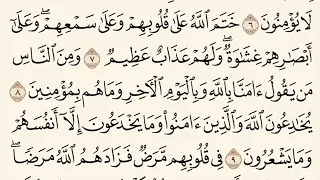 لَا يُؤْمِنُونَ ٦ خَتَمَ اللَّهُ عَلَىٰ قُلُوبِهِمْ وَعَلَىٰ سَمْعِهِمْ ۖ وَعَلَىٰ
أَبْصَارِهِمْ غِشَاوَةٌ ۖ وَلَهُمْ عَذَابٌ عَظِيمٌ ٧ وَمِنَ النَّاسِ
مَن يَقُولُ ءَامَنَّا بِاللَّهِ وَبِالْيَوْمِ الْآخِرِ وَمَا هُم بِمُؤْمِنِينَ ٨
يُخَادِعُونَ اللَّهَ وَالَّذِينَ ءَامَنُوا وَمَا يَخْدَعُونَ إِلَّا أَنفُسَهُمْ
وَمَا يَشْعُرُونَ ٩ فِي قُلُوبِهِم مَّرَضٌ فَزَادَهُمُ اللَّهُ مَرَضًا ۖ